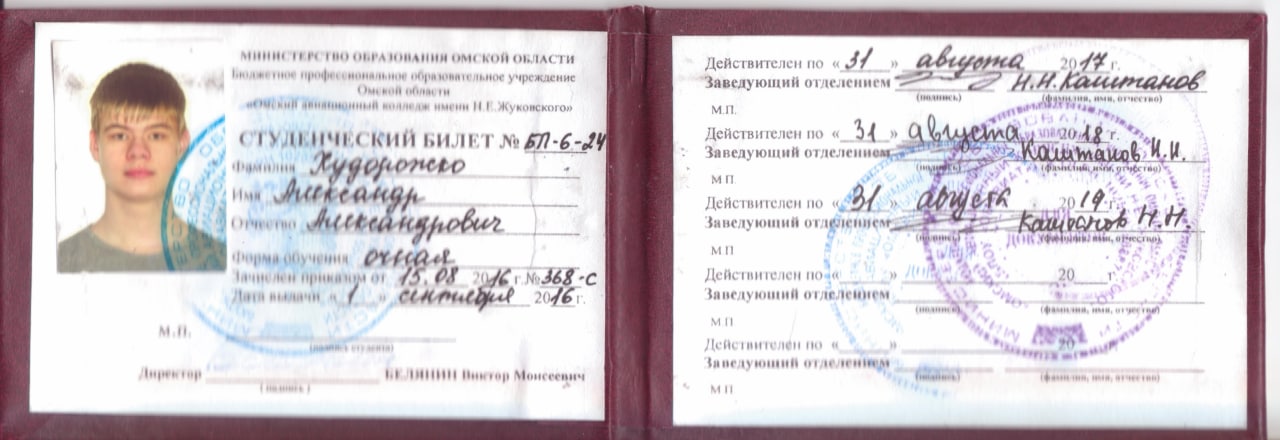 МИНИСТЕРСТВО ОБРАЗОВАНИЯ ОМСКОЙ ОБЛАСТИ
Бюджетное профессиональное образовательное учреждение
Омской области
«Омский авиационный колледж имени Н.Е.Жуковского»
СТУДЕНЧЕСКИЙ БИЛЕТ № БП-6-24
Фамилия Худорожко
Имя Александр
Отчество Александрович
Форма обучения очная
Зачислен приказом от 15.08 2016 г. № 368-С
Дата выдачи « 1 » сентября 2016 г.
М.П.
(подпись студента)
Директор БЕЛЯНИН Виктор Моисеевич
(подпись)
Действителен по « 31 » августа 2017 г.
Заведующий отделением Н.Н.Каштанов
(подпись) (фамилия, имя, отчество)
М.П.
Действителен по « 31 » августа 2018 г.
Заведующий отделением Каштанов Н.Н.
(подпись) (фамилия, имя, отчество)
М.П.
Действителен по « 31 » августа 2019 г.
Заведующий отделением Каштанов Н.Н.
(подпись) (фамилия, имя, отчество)
М.П.
Действителен по « » 20 г.
Заведующий отделением
(подпись) (фамилия, имя, отчество)
М.П.
Действителен по « » 20
Заведующий отделением
(подпись) (фамилия, имя, отчество)
М.П.